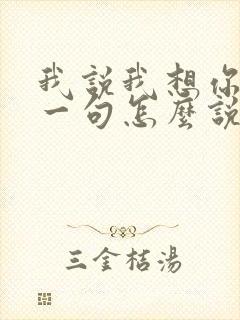 我說我想你
一句怎麼說
三金桔湯